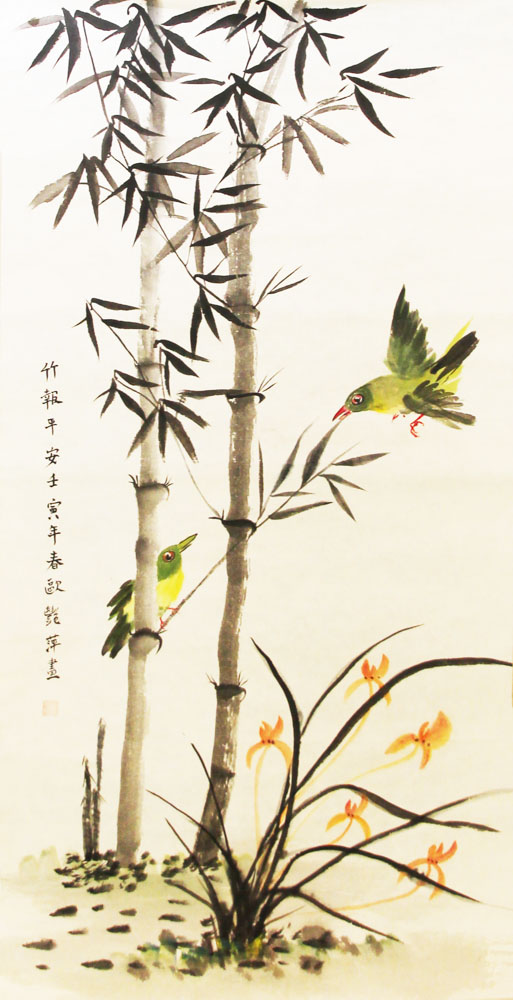 竹報平安壬寅年春歐艷萍畫